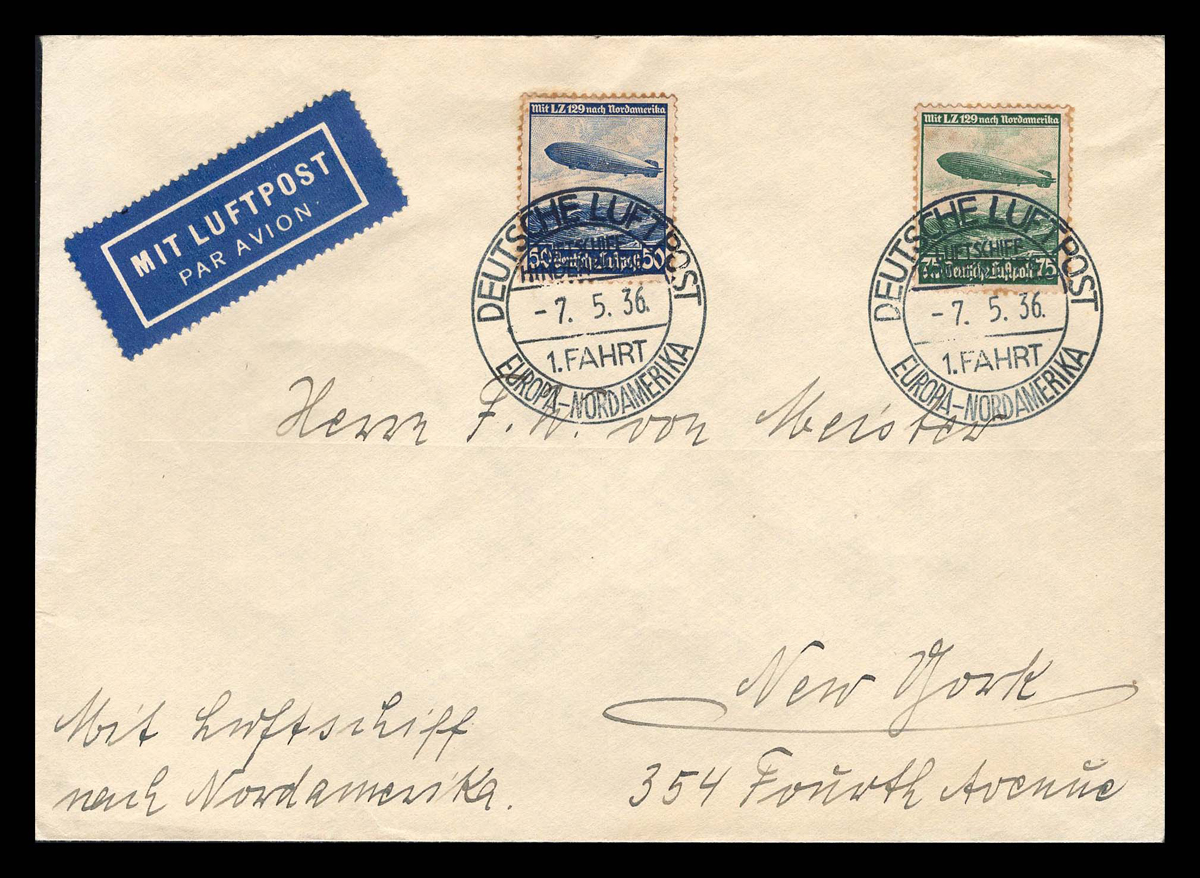 MIT LUFTPOST
PAR AVION
Mit LZ 129 nach Nordamerika
50 Deutsche Luftpost 50
DEUTSCHE LUFTPOST
LUFTSCHIFF
HINDENBURG
-7. 5. 36.
1. FAHRT
EUROPA-NORDAMERIKA
Mit LZ 129 nach Nordamerika
75 Deutsche Luftpost 75
DEUTSCHE LUFTPOST
LUFTSCHIFF
-7. 5. 36.
1. FAHRT
EUROPA-NORDAMERIKA
Herrn F. W. von Meister
New York
354 Fourth Avenue
Mit Luftschiff
nach Nordamerika.